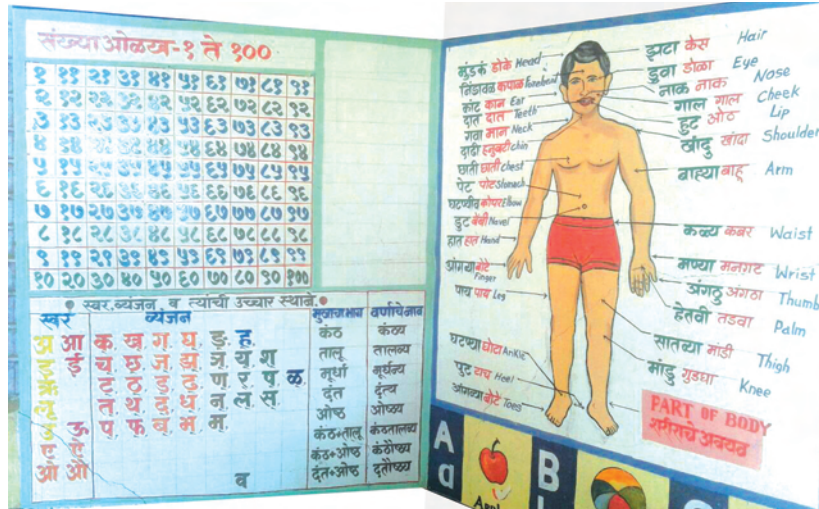 संख्या ओळख-१ ते १००
१ ११ २१ ३१ ४१ ५१ ६१ ७१ ८१ ९१
२ १२ २२ ३२ ४२ ५२ ६२ ७२ ८२ ९२
३ १३ २३ ३३ ४३ ५३ ६३ ७३ ८३ ९३
४ १४ २४ ३४ ४४ ५४ ६४ ७४ ८४ ९४
५ १५ २५ ३५ ४५ ५५ ६५ ७५ ८५ ९५
६ १६ २६ ३६ ४६ ५६ ६६ ७६ ८६ ९६
७ १७ २७ ३७ ४७ ५७ ६७ ७७ ८७ ९७
८ १८ २८ ३८ ४८ ५८ ६८ ७८ ८८ ९८
९ १९ २९ ३९ ४९ ५९ ६९ ७९ ८९ ९९
१० २० ३० ४० ५० ६० ७० ८० ९० १००
स्वर, व्यंजन, व त्यांची उच्चार स्थाने.
स्वर व्यंजन वर्णाचे नाव
अ आ क ख ग घ ङ ह कंठ कंठ्य
इ ई च छ ज झ ञ य श तालू तालव्य
ट ठ ड ढ ण र ष ळ मूर्धा मूर्धन्य
लृ त थ द ध न ल स दंत दंत्य
उ ऊ प फ ब भ म ओष्ठ ओष्ठ्य
ए ऐ कंठ+तालू कंठतालव्य
ओ औ कंठ+ओष्ठ कंठौष्ठ्य
व दंत+ओष्ठ दंतौष्ठ्य
मुंडकं डोके Head
कपाळ Forehead
कान Ear
दात दात Teeth
गवा मान Neck
दाढी हनुवटी chin
छाती छाती chest
पेट पोट Stomach
कोपर Elbow
डुट बेंबी Navel
हात हात Hand
आंगया बोटे Finger
पाय पाय Leg
घटप्या घोटा Ankle
पुट टाच Heel
आंगव्या बोटे Toes
झटा केस Hair
डुवा डोळा Eye
नाक नाक Nose
गाल गाल Cheek
हुट ओठ Lip
खांदु खांदा Shoulder
बाह्या बाहू Arm
कळ्य कंबर Waist
मण्या मनगट Wrist
अंगठु अंगठा Thumb
हेतवी तडवा Palm
सातव्या मांडी Thigh
मांडु गुडघा Knee
PART OF BODY
शरीराचे अवयव
A
a
Apple
B